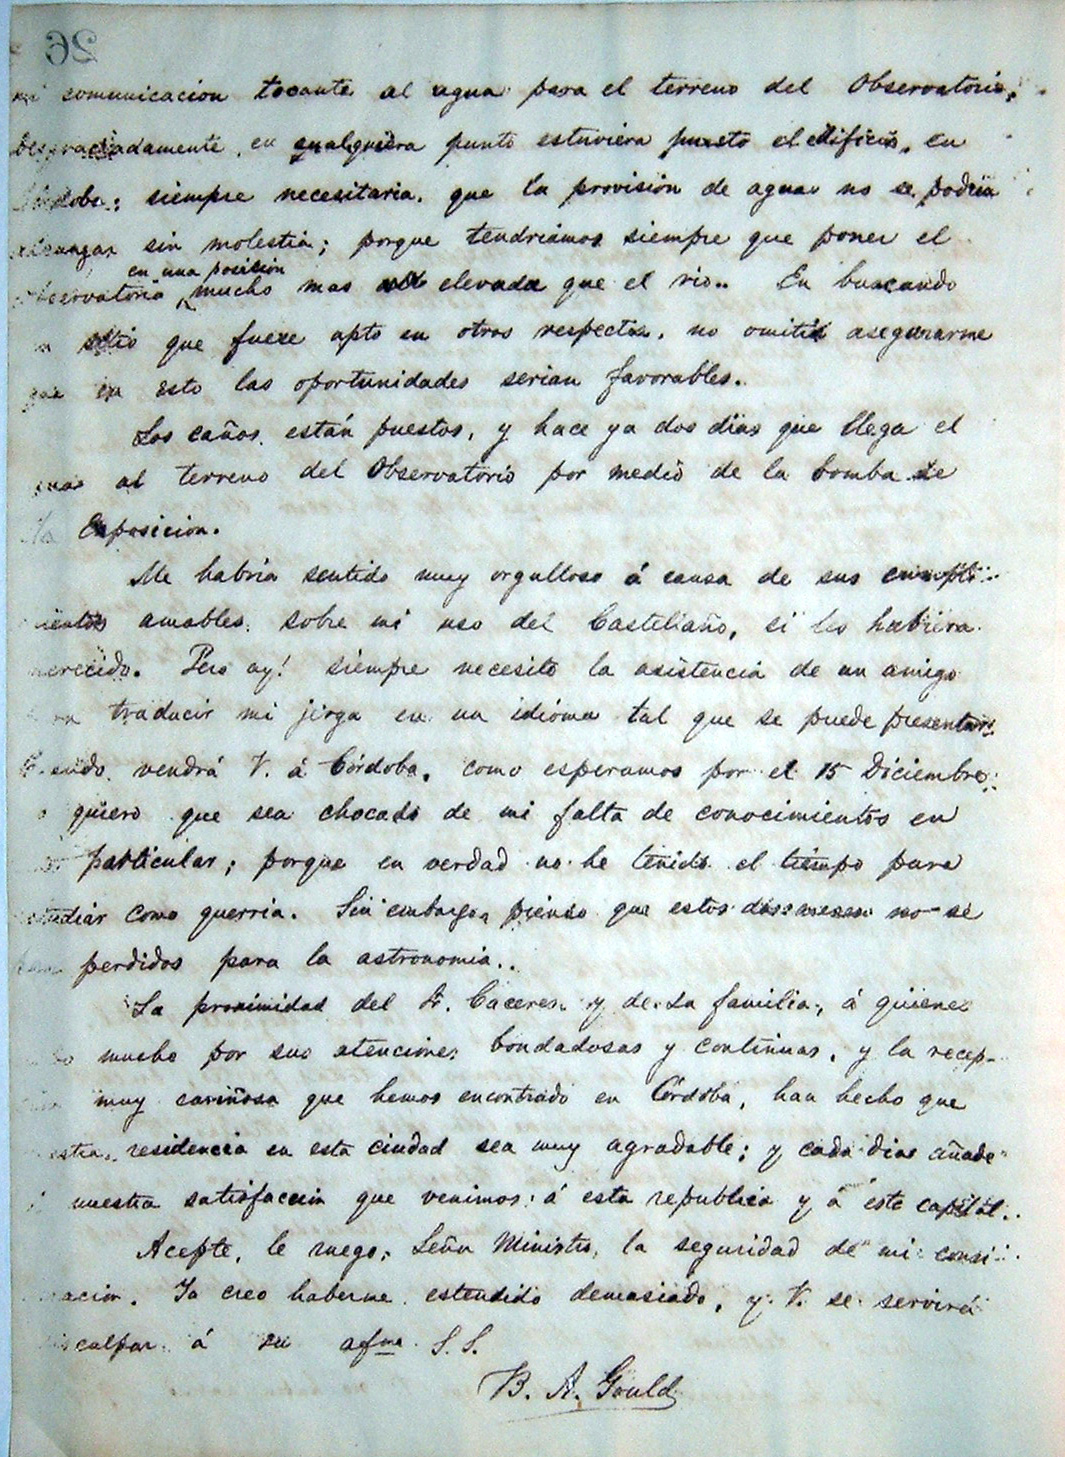 26
mi comunicacion tocante al agua para el terreno del Observatorio,
Desgraciadamente, en qualquiera punto estuviera puesto el edificio, en
Cordoba; siempre necesitaria, que la provisión de agua no se podria
alcanzar sin molestia; porque tendriamos siempre que poner el
en una posición
Observatorio mucho mas elevada que el rio.. En buscando
un sitio que fuese apto en otros respectos, no omiti asegurarme
que en esto las oportunidades serian favorables.
Los caños están puestos, y hace ya dos dias que llega el
agua al terreno del Observatorio por medio de la bomba de
la Exposicion.
Me habria sentido muy orgulloso á causa de sus cumpli-
mientos amables sobre mi uso del Castellaño, si les hubiera
merecido. Pero ay! siempre necesito la asistencia de un amigo
para traducir mi jerga en un idióma tal que se puede presentar.
Cuando vendrá V. á Córdoba, como esperamos por el 15 Diciembre,
no quiero que sea chocado de mi falta de conocimientos en
este particular; porque en verdad no he tenido el tiempo para
estudiar como querria. Sin embargo, pienso que estos dos meses no se
han perdidos para la astronomia..
La proximidad del Sr. Caceres y de su familia, á quienes
mucho por sus atenciones bondadosas y continuas, y la recep-
cion muy cariñosa que hemos encontrado en Córdoba, han hecho que
nuestra residencia en esta ciudad sea muy agradable; y cada dia añade
á nuestra satisfaccion que venimos á esta republica y á este capital.
Acepte, le ruego, Señor Ministro, la seguridad de mi consi-
deracion. Ya creo haberme estendido demasiado, y V. se servirá
disculpar á su afmo S. S.
B. A. Gould